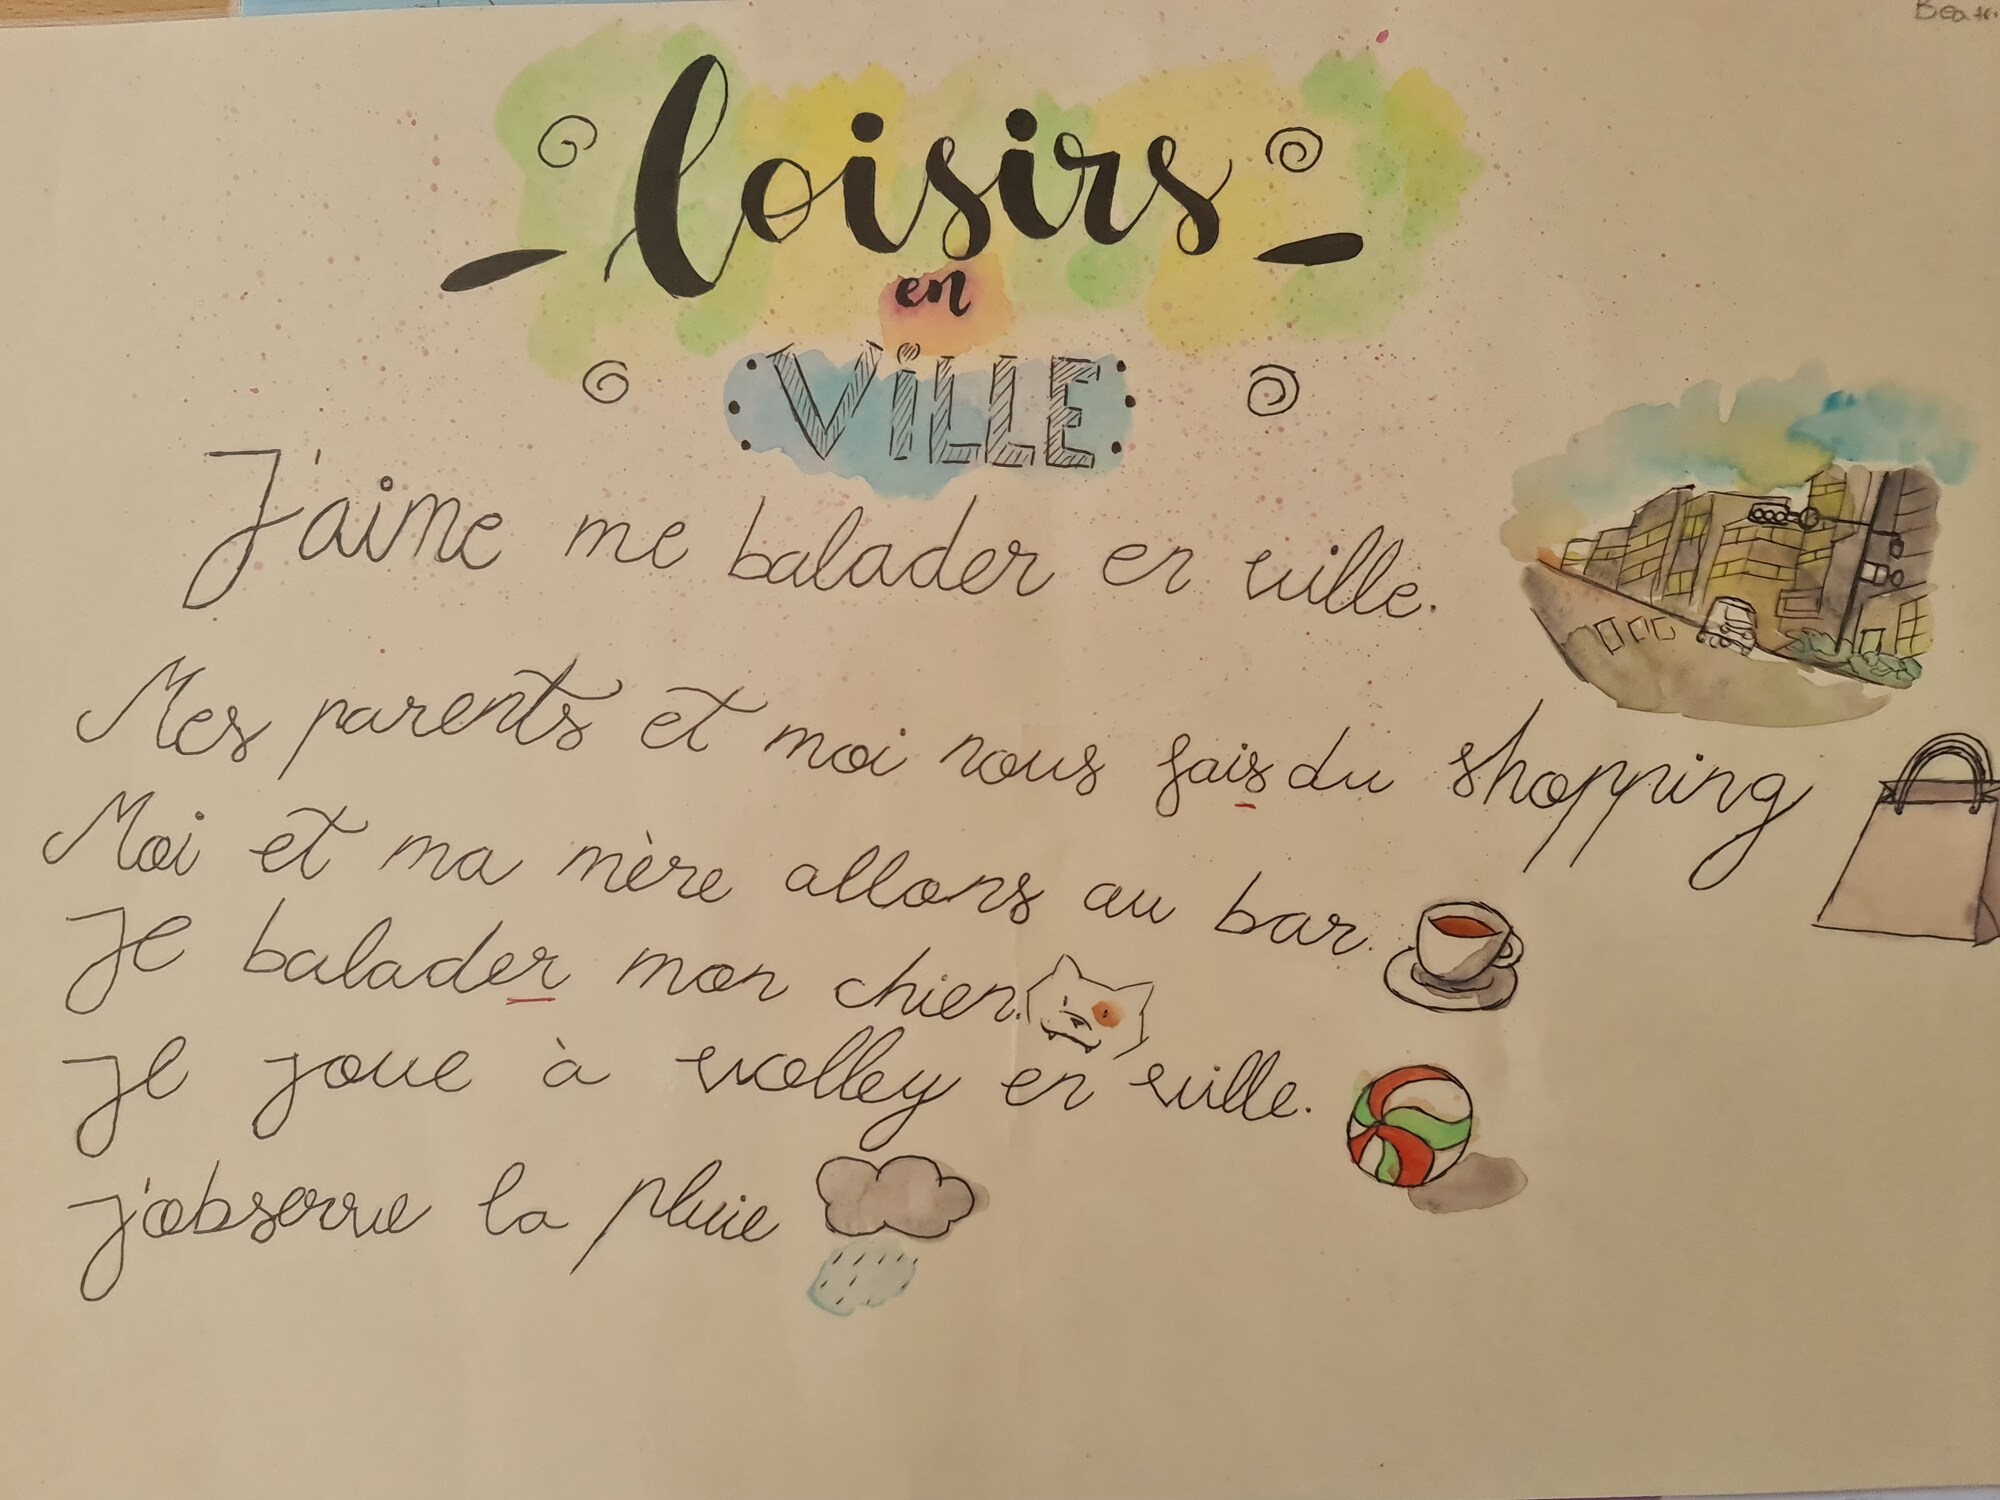 Beatr
loisirs
en
ViLLE
J'aime me balader en ville.
Mes parents et moi nous fais du shopping
Moi et ma mère allons au bar.
Je balader mon chien.
Je joue à volley en ville.
j'observe la pluie